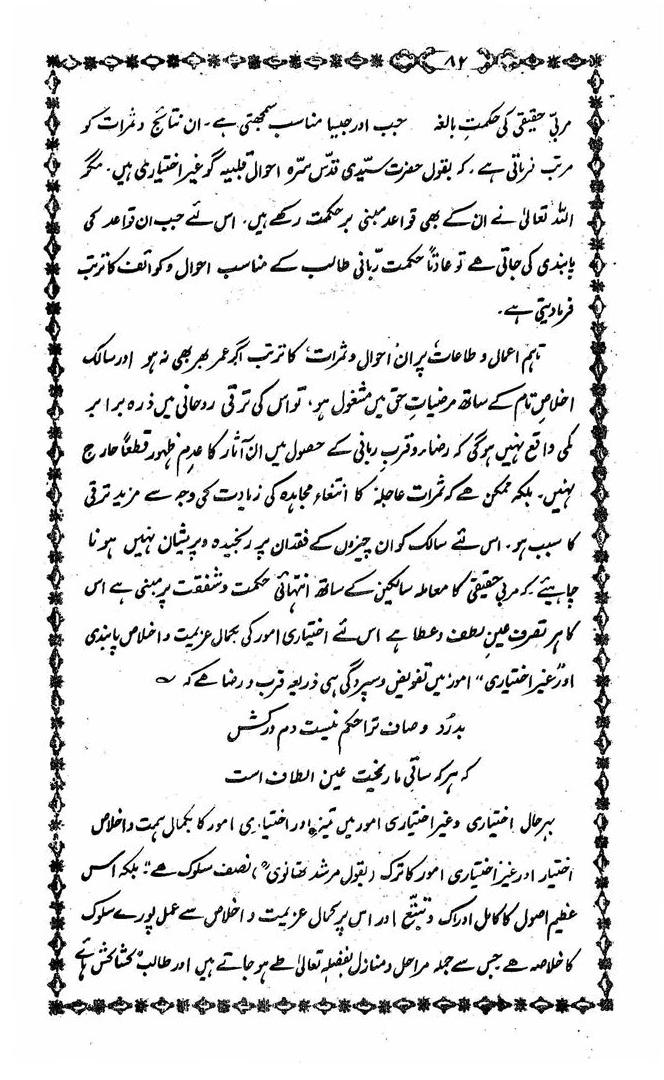 ۸۲
مربّیِ حقیقی کی حکمتِ بالغہ جب اور جیسا مناسب سمجھتی ہے۔ ان نتائج و ثمرات کو
مرتب فرماتی ہے۔ کہ بقول حضرت سیّدی قدّس سرّہ احوالِ قلبیہ گو غیر اختیاری ہیں۔ مگر
اللہ تعالیٰ نے ان کے بھی قواعد مبنی بر حکمت رکھے ہیں۔ اس لئے جب ان قواعد کی
پابندی کی جاتی ہے تو عادتاً حکمت ربّانی طالب کے مناسب احوال و کوائف کا ترتب
فرما دیتی ہے۔
تاہم اعمال و طاعات پر ان احوال و ثمرات کا ترتب اگر عمر بھر بھی نہ ہو اور سالک
اخلاص تام کے ساتھ مرضیاتِ حق میں مشغول ہو، تو اس کی ترقی روحانی میں ذرہ برابر
کمی واقع نہیں ہوگی کہ رضاء و قرب ربانی کے حصول میں ان آثار کا عدمِ ظہور قطعاً حارج
نہیں۔ بلکہ ممکن ہے کہ ثمرات عاجلہ کا انتفاء مجاہدہ کی زیادت کی وجہ سے مزید ترقی
کا سبب ہو۔ اس لئے سالک کو ان چیزوں کے فقدان پر رنجیدہ و پریشان نہیں ہونا
چاہیئے کہ مربی حقیقی کا معاملہ سالکین کے ساتھ انتہائی حکمت و شفقت پر مبنی ہے اس
کا ہر تصرف عین لطف و عطا ہے اس لئے اختیاری امور کی بکمال عزیمت و اخلاص پابندی
اور غیر اختیاری" امور میں تفویض و سپردگی ہی ذریعہ قرب و رضا ہے کہ ؎
بدُرد و صاف ترا حکم نیست دم درکش
کہ ہر کہ ساقی ما ریخت عین الطاف است
بہرحال اختیاری و غیر اختیاری امور میں تمیز اور اختیاری امور کا بکمال ہمت و اخلاص
اختیار اور غیر اختیاری امور کا ترک (بقول مرشد تھانویؒ) نصف سلوک ہے" بلکہ اس
عظیم اصول کا کامل ادراک و تیقّع اور اس پر کمال عزیمت و اخلاص سے عمل پورے سلوک
کا خلاصہ ہے جس سے جملہ مراحل و منازل بفضلہٖ تعالیٰ طے ہو جاتے ہیں اور طالب کشاکش ہائے